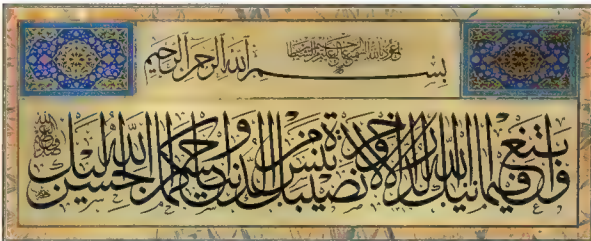 بسم الله الرحمن الرحيم
وابتغ فيما آتاك الله الدار الآخرة ولا تنس نصيبك من الدنيا وأحسن كما أحسن الله إليك